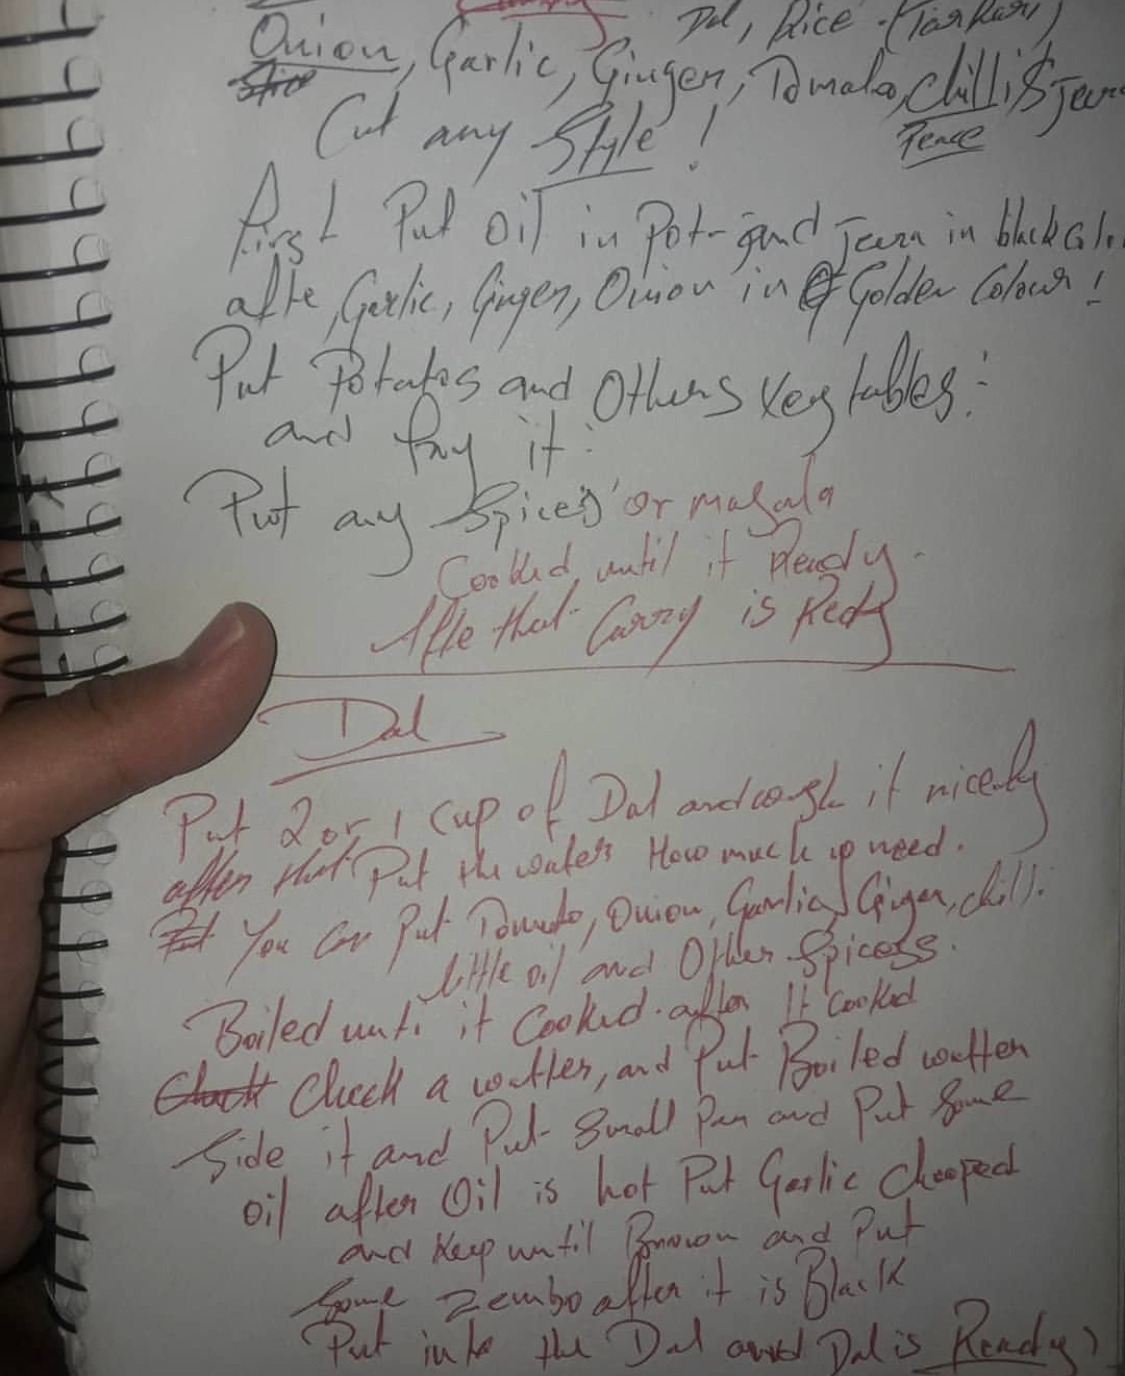 Dal, Rice (Tarkari)
Onion, Garlic, Ginger, Tomato, chilli's Jeera
Cut any Style! Peace
first Put Oil in Pot and Jeera in black
afte, Garlic, Ginger, Onion in Golden Colour!
Put Potatos and Others vegtables:
and fry it:
Put any Spices or masala
Cooked until it Ready.
Afte that Carry is Redy
Dal
Put 2 or 1 Cup of Dal and it nicenly
after that Put the waters How much need.
You Can Put Tomato, Onion, Garlic, Ginger, chilli
little oil and Other Spicess.
Boiled unti it Cooked. after It Cooked
Check a watter, and Put Boiled watter
Side it and Put Small Pan and Put Some
oil after Oil is hot Put Garlic chooped
and Keep until Brown and Put
Some Zembo after it is Black
Put into the Dal and Dal is Ready